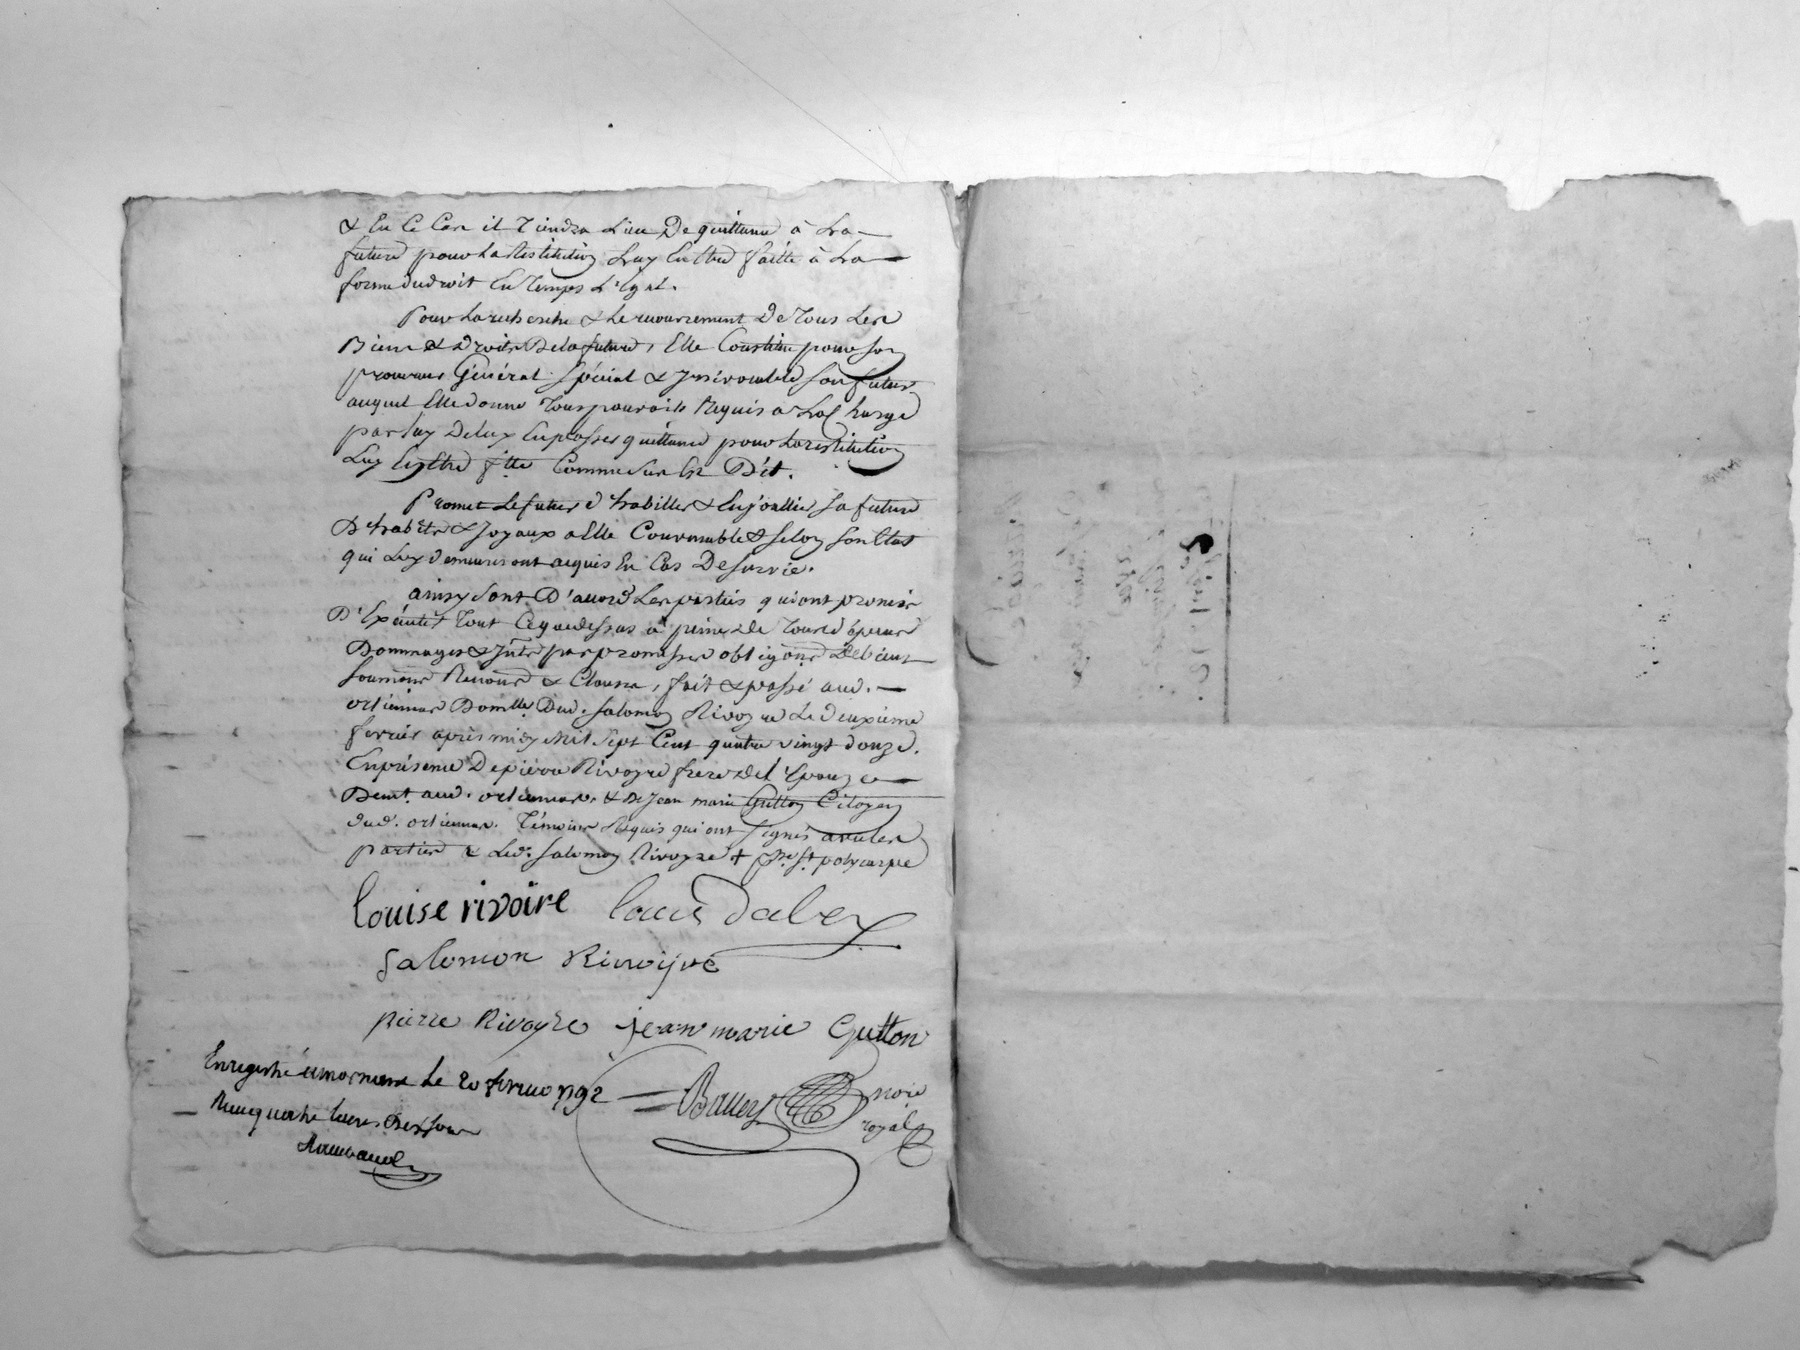 & En Ce Cas il Tiendra Lieu De quittance à La
future pour La Restitution Luy En Etre faitte à La
forme du droit En Temps L'Egal.
Pour La recherche & Le recouvrement De Tous Les
Biens & Droits De La future, Elle Constitue pour son
procureur Général Spécial & Irrévocable son futur
auquel Elle donne Tous pouvoirs Requis a La Charge
par Luy De Luy En passer quittance pour La restitution
Luy En Etre f.tte Comme Sus Est Dit.
Promet Le futur d'habiller & Enjoallier Sa future
D'habits & Joyaux a Elle Convenable & selon son Etat
qui Luy demeureront acquis En Cas De survie.
ainsy sont D'accord Les parties qui ont promis
D'Exécuter Tout Ce que dessus à peine De Tous dépens
Dommages & Intr. par promesses obligons De biens
soumons Renons & Clauses, fait & passé aud.
ortiennas Domlle. Dud. Salomon Rivoyre Le deuxieme
fevrier après midy Mil Sept Cent quatre vingt douze.
En présence De pierre Rivoyre frere De L'Epouze
Demt. aud. ortiennas. & De Jean marie Gutton Citoyen
dud. ortiennas. Témoins Requis qui ont signés avec les
parties & Led. Salomon Rivoyre + St polycarpe
Louise rivoire Louis Dalex
Salomon Rivoiyre
pierre Rivoyre jean marie Gutton
Enregistré a mornant Le 20 fevrier 1792
Reçu quatre livres dix sous
Noire
royal